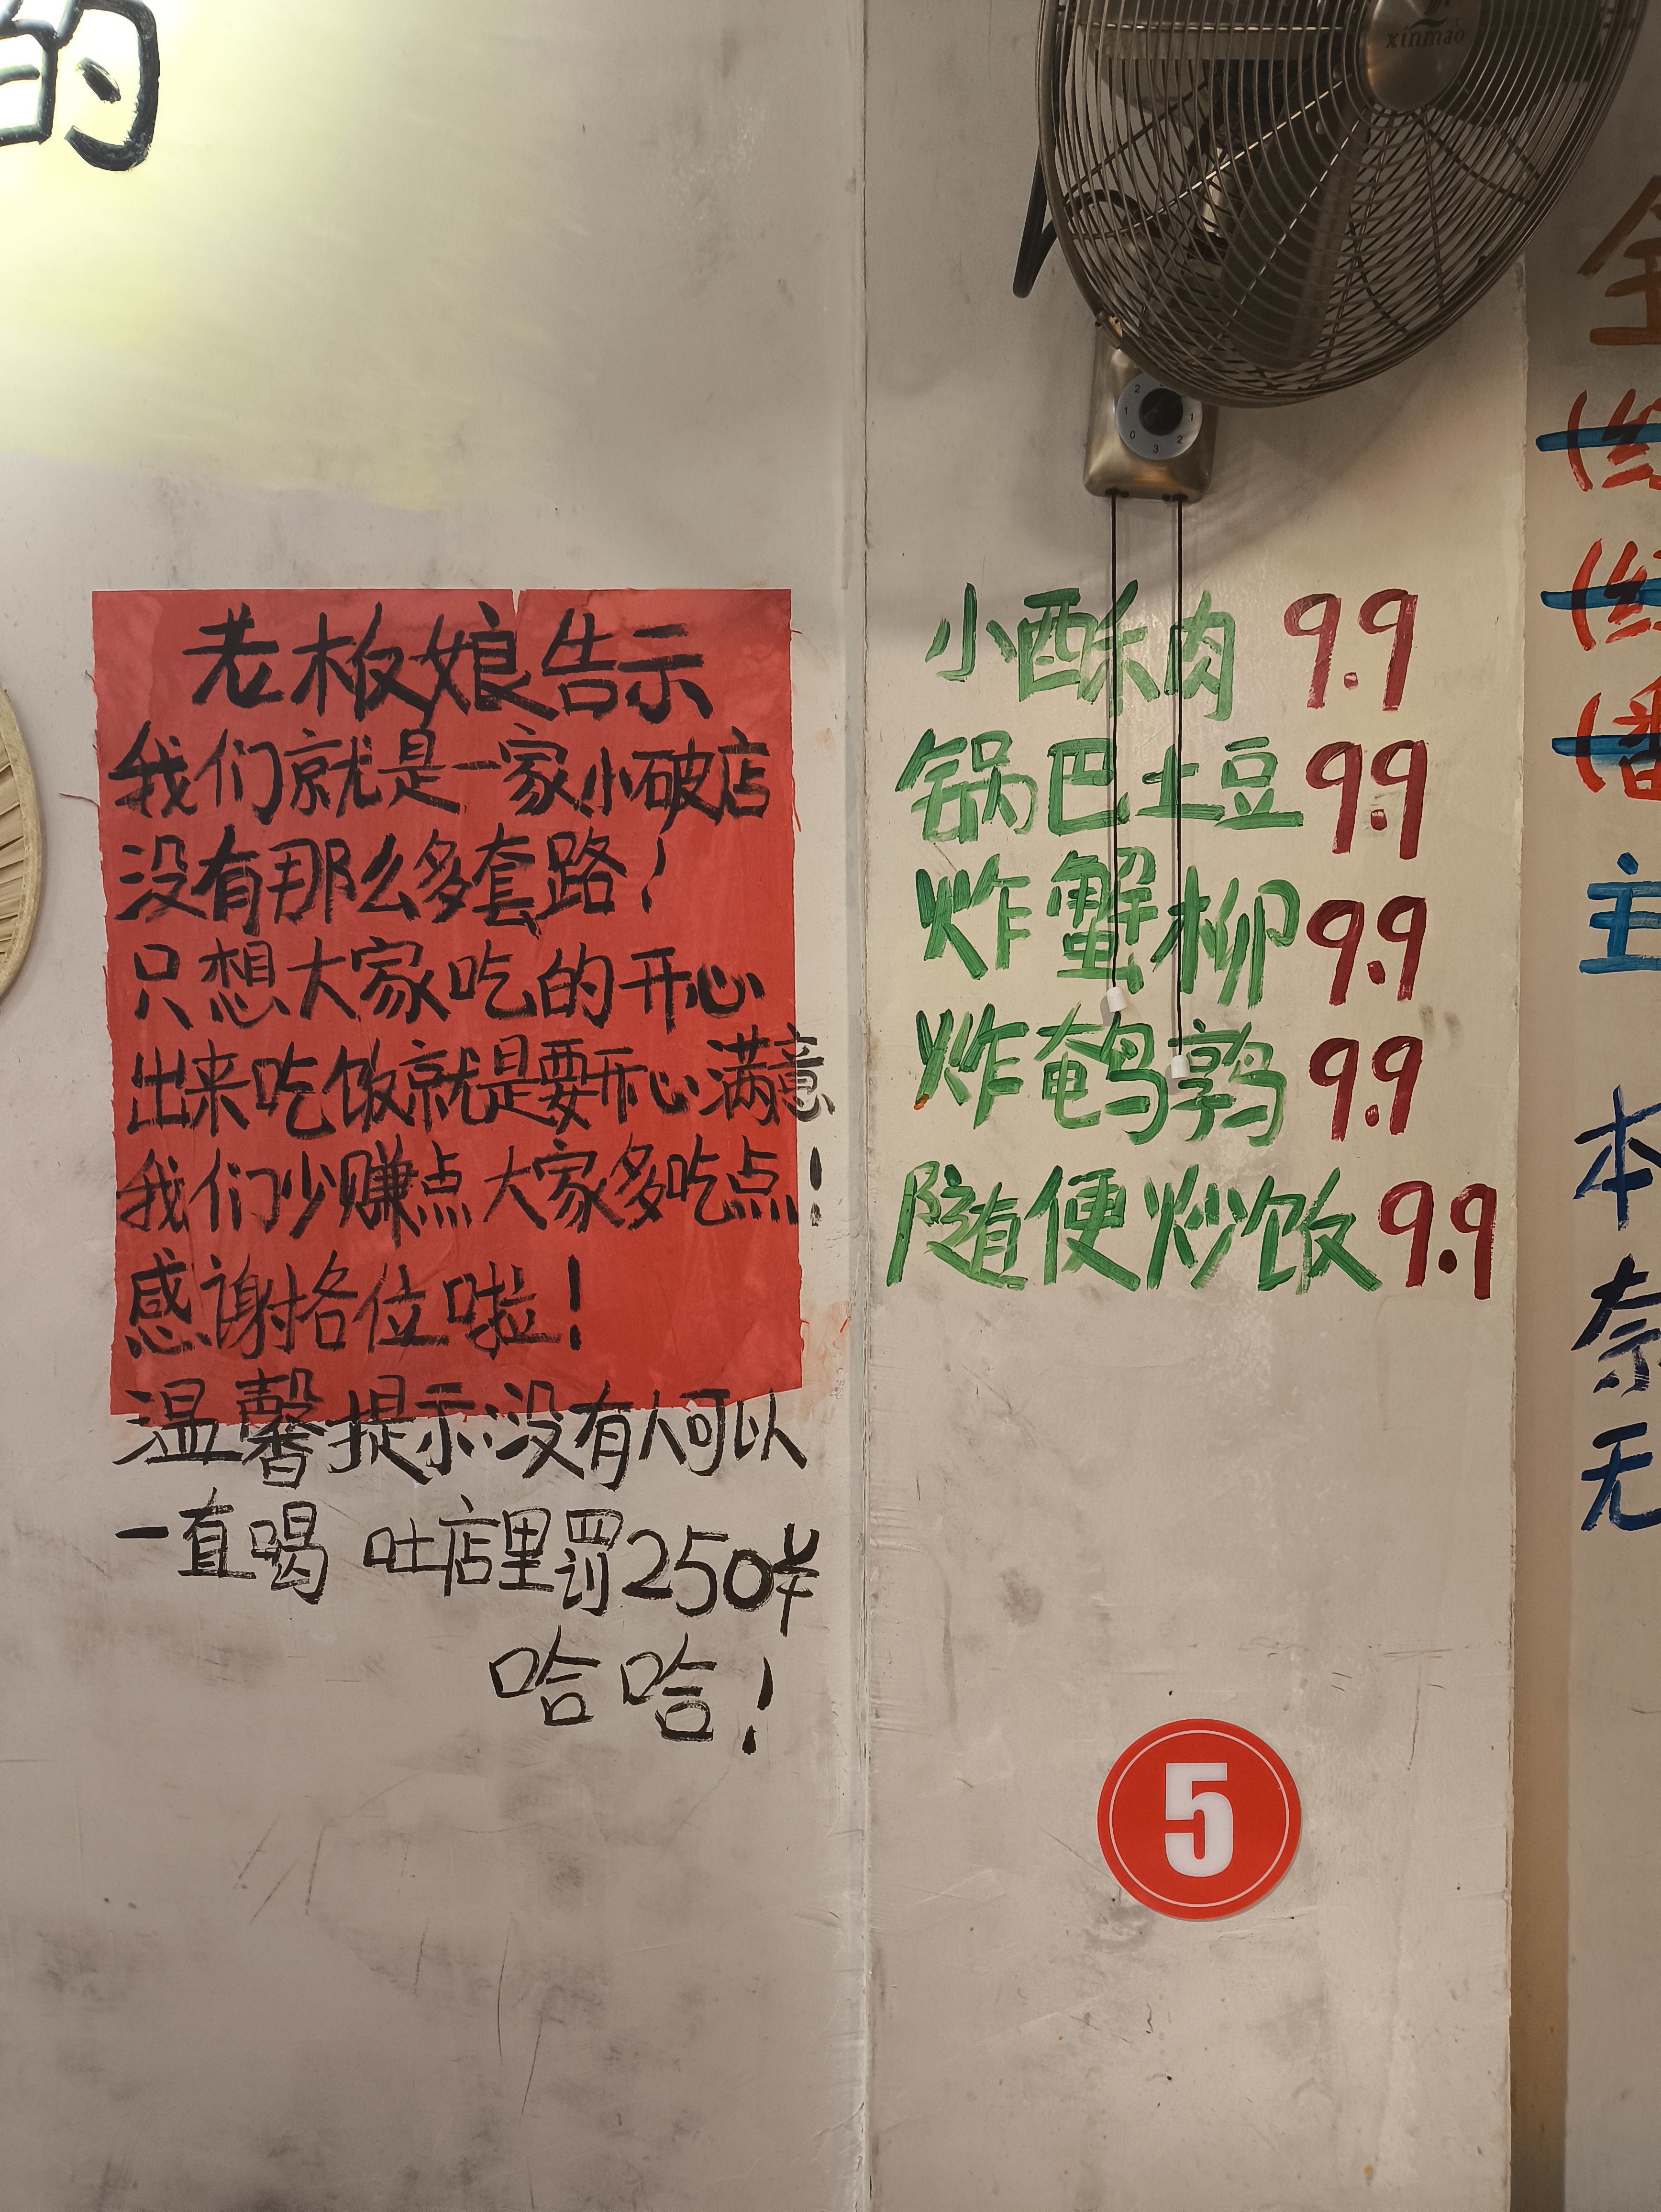 的
xinmao
老板娘告示
我们就是一家小破店
没有那么多套路！
只想大家吃的开心
出来吃饭就是要开心满意
我们少赚点大家多吃点！
感谢各位啦！
温馨提示:没有人可以
一直喝 吐店里罚250半
哈哈！
小酥肉 9.9
锅巴土豆 9.9
炸蟹柳 9.9
炸鹌鹑 9.9
随便炒饭 9.9
5
全
(番
主
本
奈
无